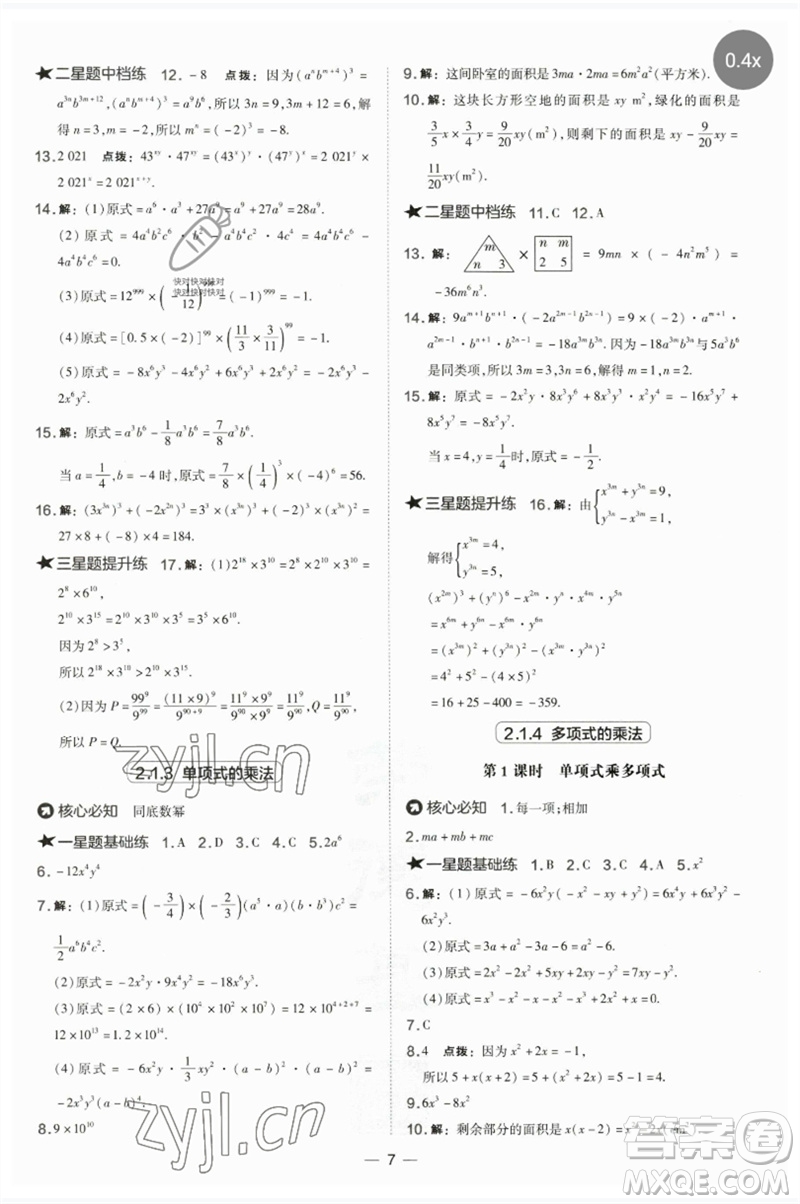 0.4x
★二星题中档练 12. -8 点拨：因为(aⁿbᵐ⁺⁴)³ =
a³ⁿb³ᵐ⁺¹²,(aⁿbᵐ⁺⁴)³ = a⁹b⁶,所以 3n = 9,3m + 12 = 6,解
得 n = 3,m = -2,所以 mⁿ = (-2)³ = -8.
13. 2 021 点拨：43ˣʸ · 47ˣʸ = (43ˣ)ʸ · (47ʸ)ˣ = 2 021ʸ ×
2 021ˣ = 2 021ˣ⁺ʸ = 2 021.
14. 解：(1)原式 = a⁶ · a³ + 27a⁹ = a⁹ + 27a⁹ = 28a⁹.
(2)原式 = 4a⁴b²c⁶ · b² - a⁴b⁴c² · 4c⁴ = 4a⁴b⁴c⁶ -
4a⁴b⁴c⁶ = 0.
(3)原式 = 12⁹⁹⁹ × (-1/12)⁹⁹⁹ = -1.
快对快对快对
快对快对快对
(4)原式 = [0.5 × (-2)]⁹⁹ × (11/3 × 3/11)⁹⁹ = -1.
(5)原式 = -8x⁶y² - 4x⁶y² + 6x⁶y² + 4x⁶y² = -2x⁶y² -
2x⁶y².
15. 解：原式 = a³b⁶ - 1/8a³b⁶ = 7/8a³b⁶.
当 a = 1/4,b = -4 时,原式 = 7/8 × (1/4)³ × (-4)⁶ = 56.
16. 解：(3x³ⁿ)³ + (-2x²ⁿ)³ = 3³ × (x³ⁿ)³ + (-2)³ × (x³ⁿ)² =
27 × 8 + (-8) × 4 = 184.
★三星题提升练 17. 解：(1)2¹⁸ × 3¹⁰ = 2⁸ × 2¹⁰ × 3¹⁰ =
2⁸ × 6¹⁰,
2¹⁰ × 3¹⁵ = 2¹⁰ × 3¹⁰ × 3⁵ = 3⁵ × 6¹⁰.
因为 2⁸ > 3⁵,
所以 2¹⁸ × 3¹⁰ > 2¹⁰ × 3¹⁵.
(2)因为 P = 99⁹/9⁹⁹ = (11 × 9)⁹/9⁹⁰⁺⁹ = 11⁹ × 9⁹/9⁹⁰ × 9⁹ = 11⁹/9⁹⁰,Q = 11⁹/9⁹⁰,
所以 P = Q.
zyjl.cn
2.1.3 单项式的乘法
核心必知 同底数幂
★一星题基础练 1. A 2. D 3. C 4. C 5. 2a⁶
6. -12x⁴y⁴
7. 解：(1)原式 = (-3/4) × (-2/3)(a⁵ · a)(b · b³)c =
1/2a⁶b⁴c.
(2)原式 = -2x²y · 9x⁴y² = -18x⁶y³.
(3)原式 = (2 × 6) × (10⁴ × 10² × 10⁷) = 12 × 10⁴⁺²⁺⁷ =
12 × 10¹³ = 1.2 × 10¹⁴.
(4)原式 = -6x²y · 1/3xy² · (a - b)³ · (a - b)² =
-2x³y³(a - b)⁵.
8. 9 × 10¹⁰
zyjl.cn
9. 解：这间卧室的面积是 3ma · 2ma = 6m²a²(平方米).
10. 解：这块长方形空地的面积是 xy m²,绿化的面积是
3/5x × 3/4y = 9/20xy(m²),则剩下的面积是 xy - 9/20xy =
11/20xy(m²).
★二星题中档练 11. C 12. A
13. 解：m n 3 × n m 2 5 = 9mn × (-4n²m⁵) =
-36m⁶n³.
14. 解：9aᵐ⁺¹bⁿ⁺¹ · (-2a²ᵐ⁻¹b²ⁿ⁻¹) = 9 × (-2) · aᵐ⁺¹ ·
a²ᵐ⁻¹ · bⁿ⁺¹ · b²ⁿ⁻¹ = -18a³ᵐb³ⁿ. 因为 -18a³ᵐb³ⁿ与5a³b⁶
是同类项,所以 3m = 3,3n = 6,解得 m = 1,n = 2.
15. 解：原式 = -2x²y · 8x³y⁶ + 8x⁶y³ · x² · y⁴ = -16x⁵y⁷ +
8x⁸y⁷.
当 x = 4,y = 1/4时,原式 = -1 + 32 = 31.
★三星题提升练 16. 解：由{x³ᵐ + y³ⁿ = 9, y³ⁿ - x³ᵐ = 1,
解得{x³ᵐ = 4, y³ⁿ = 5,
(x²ᵐ)³ + (yⁿ)⁶ - x²ᵐyⁿ · yⁿ · x⁴ᵐ · y⁴ⁿ
= x⁶ᵐ + y⁶ⁿ - x⁶ᵐ · y⁶ⁿ
= (x³ᵐ)² + (y³ⁿ)² - (x³ᵐ · y³ⁿ)²
= 4² + 5² - (4 × 5)²
= 16 + 25 - 400 = -359.
2.1.4 多项式的乘法
第 1 课时 单项式乘多项式
核心必知 1. 每一项;相加
2. ma + mb + mc
★一星题基础练 1. B 2. C 3. A 4. D 5. x²
6. 解：(1)原式 = -6x²y(x - y²) = -6x²y · x + 6x²y · y² = -6x³y +
6x²y³.
(2)原式 = 3a + a² - 2a - 6 = a² + a - 6.
(3)原式 = 2x²y - 2xy² + 5xy = 2x²y + 3xy².
(4)原式 = x³ - x² - x³ - x² + x + 2x² - x = 0.
7. C
8. 4 点拨：因为 x² + 2x = -1,
所以 5 + x(x + 2) = 5 + x² + 2x = 5 - 1 = 4.
9. 6x³ - 8x²
10. 解：剩余部分的面积是 x(x - 2) = x²
7
答案圈
MXQE.COM